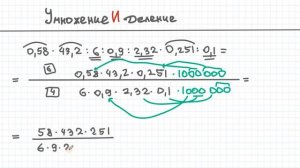 Умножение И Деление
0,58 · 43,2 : 6 : 0,9 : 2,32 · 0,251 : 0,1 =
= 6 0,58 · 43,2 · 0,251 · 1000000 =
4 6 · 0,9 · 2,32 · 0,1 · 1000000
= 58 · 432 · 251
6 · 9 · 2